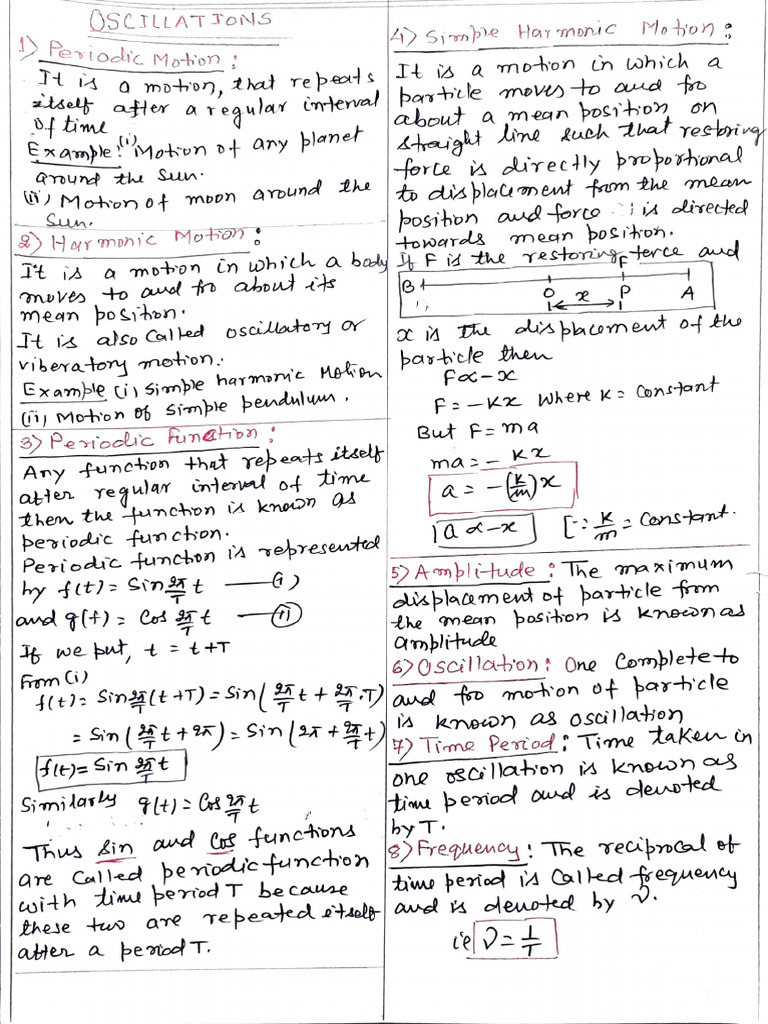 OSCILLATIONS
1) Periodic Motion :
It is a motion, that repeats
itself after a regular interval
of time
Example: (i) Motion of any planet
around the sun.
(ii) Motion of moon around the
Sun.
2) Harmonic Motion :
It is a motion in which a body
moves to and fro about its
mean position.
It is also called oscillatory or
viberatory motion.
Example (i) Simple harmonic Motion
(ii) Motion of simple pendulum.
3) Periodic Function :
Any function that repeats itself
after regular interval of time
then the function is known as
periodic function.
Periodic function is represented
by f(t) = Sin 2π/T t — (i)
and g(t) = Cos 2π/T t — (ii)
If we put, t = t+T
From (i)
f(t) = Sin 2π/T (t+T) = Sin (2π/T t + 2π/T . T)
= Sin (2π/T t + 2π) = Sin (2π + 2π/T t)
f(t) = Sin 2π/T t
Similarly g(t) = Cos 2π/T t
Thus sin and cos functions
are called periodic function
with time period T because
these two are repeated itself
after a period T.
4) Simple Harmonic Motion :
It is a motion in which a
particle moves to and fro
about a mean position on
straight line such that restoring
force is directly proportional
to displacement from the mean
position and force is directed
towards mean position.
If F is the restoring force and
F
B O x P A
x is the displacement of the
particle then
F ∝ -x
F = -Kx where K = constant
But F = ma
ma = - Kx
a = -(K/m)x
a ∝ -x [∵ K/m = constant.
5) Amplitude : The maximum
displacement of particle from
the mean position is known as
amplitude
6) Oscillation : One complete to
and fro motion of particle
is known as oscillation
7) Time Period : Time taken in
one oscillation is known as
time period and is denoted
by T.
8) Frequency : The reciprocal of
time period is called frequency
and is denoted by ν.
ie ν = 1/T